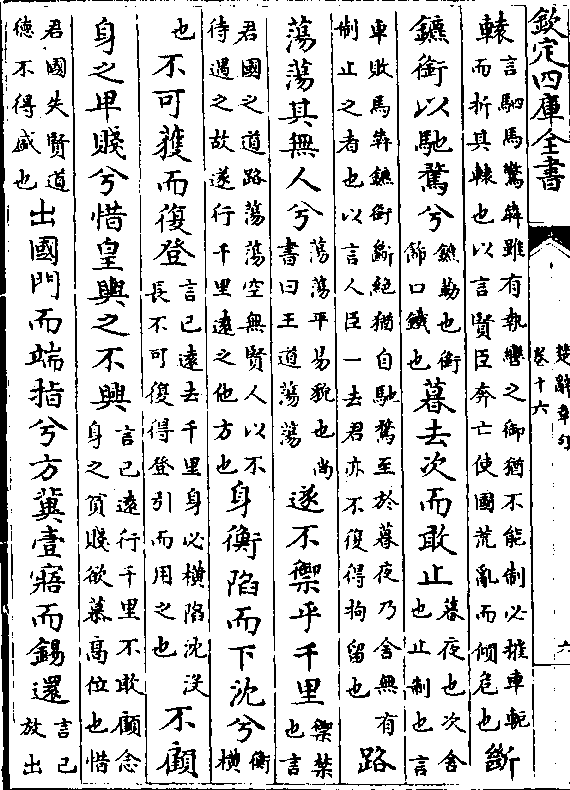 欽定四庫全書
楚辭章句
卷十六
六
轅言駟馬驚犇雖有執轡之御猶不能制必摧車軛而折其轅也以言賢臣奔亡使國荒亂而傾危也斷
鑣銜以馳騖兮鑣勒也銜飾口鐵也暮去次而敢止暮夜也次舍也止制也言
車敗馬犇鑣銜斷絕猶自馳騖至於暮夜乃舍無有制止之者也以言人臣一去君亦不復得拘留也路
蕩蕩其無人兮蕩蕩平易貌也尚書曰王道蕩蕩遂不禦乎千里禦禁也言
君國之道路蕩蕩空無賢人以不待遇之故遂行千里遠之他方也身衡陷而下沈兮衡橫
也不可獲而復登言已遠去千里身必橫陷沈沒長不可復得登引而用之也不顧
身之卑賤兮惜皇輿之不興言已遠行千里不敢顧念身之貧賤欲慕高位也惜
君國失賢道德不得盛也出國門而端指兮方冀壹寤而錫還言已放出